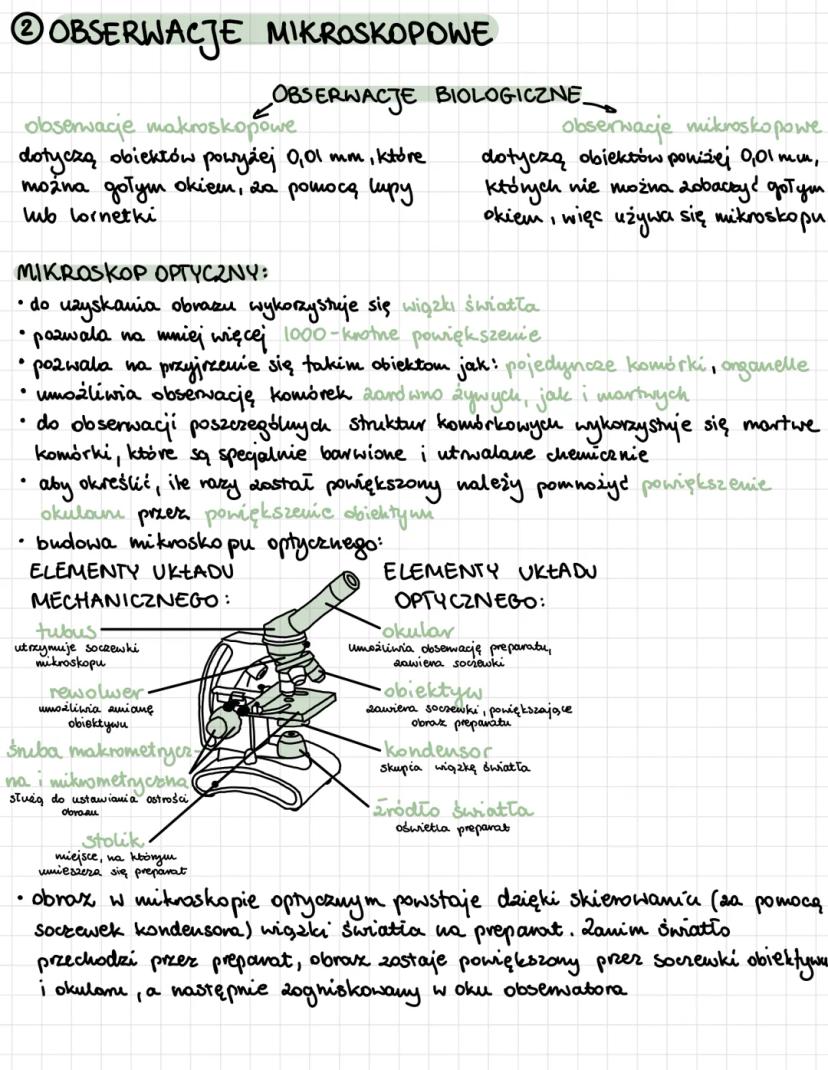 2 OBSERWACJE MIKROSKOPOWE
OBSERWACJE BIOLOGICZNE
obserwacje makroskopowe
dotyczą obiektów powyżej 0,01 mm, które
można gołym okiem, za pomocą lupy
lub lornetki
obserwacje mikroskopowe
dotyczą obiektów poniżej 0,01 mm,
których nie można zobaczyć gołym
okiem, więc używa się mikroskopu
MIKROSKOP OPTYCZNY:
• do uzyskania obrazu wykorzystuje się wiązki światła
• pozwala na mniej więcej 1000-krotne powiększenie
• pozwala na przyjrzenie się takim obiektom jak: pojedyncze komórki, organelle
• umożliwia obserwację komórek zarówno żywych, jak i martwych
• do obserwacji poszczególnych struktur komórkowych wykorzystuje się martwe
komórki, które są specjalnie barwione i utrwalane chemicznie
• aby określić, ile razy został powiększony należy pomnożyć powiększenie
okularu przez powiększenie obiektywu
• budowa mikroskopu optycznego:
ELEMENTY UKŁADU
MECHANICZNEGO:
tubus
utrzymuje soczewki
mikroskopu
rewolwer
umożliwia zmianę
obiektywu
śruba makrometrycz-
na i mikrometryczna
służą do ustawiania ostrości
obrazu
stolik
miejsce, na którym
umieszcza się preparat
ELEMENTY UKŁADU
OPTYCZNEGO:
okular
umożliwia obserwację preparatu,
zawiera soczewki
obiektyw
zawiera soczewki, powiększające
obraz preparatu
kondensor
skupia wiązkę światła
źródło światła
oświetla preparat
• obraz w mikroskopie optycznym powstaje dzięki skierowaniu (za pomocą
soczewek kondensora) wiązki światła na preparat. Zanim światło
przechodzi przez preparat, obraz zostaje powiększony przez soczewki obiektywu
i okularu, a następnie zogniskowany w oku obserwatora